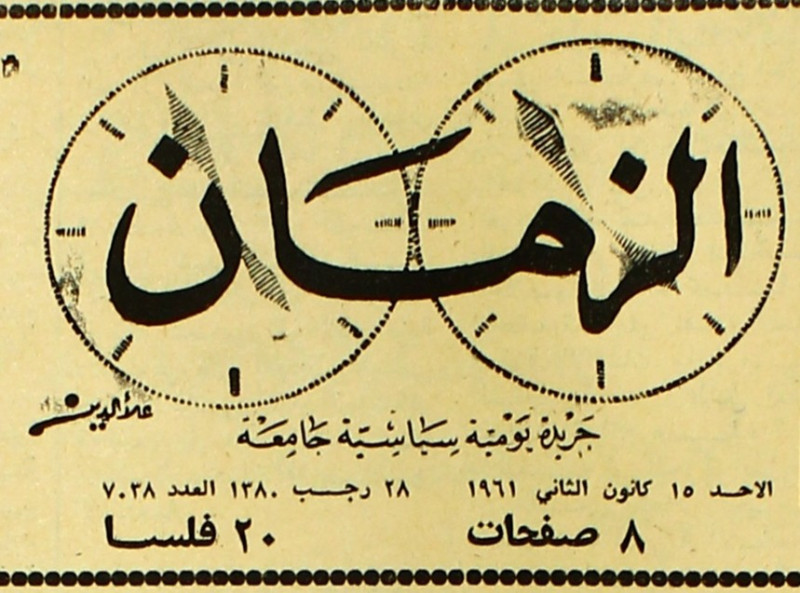 الزمان
علاءالدين
جريدة يومية سياسية جامعة
الاحد ١٥ كانون الثاني ١٩٦١ ٢٨ رجب ١٣٨٠ العدد ٧٠٣٨
٨ صفحات ٢٠ فلسا